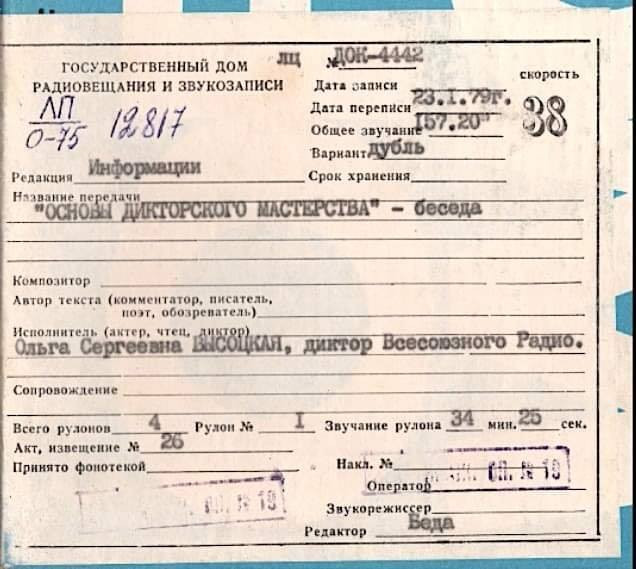 ГОСУДАРСТВЕННЫЙ ДОМ
РАДИОВЕЩАНИЯ И ЗВУКОЗАПИСИ
ЛП
О-75 12817
лц № ДОК-4442
Дата записи
Дата переписи 23.I.79г.
Общее звучание 157.20"
Вариант дубль
Срок хранения
скорость
38
Редакция Информации
Название передачи
"ОСНОВЫ ДИКТОРСКОГО МАСТЕРСТВА" - беседа
Композитор
Автор текста (комментатор, писатель,
поэт, обозреватель)
Исполнитель (актер, чтец, диктор)
Ольга Сергеевна ВЫСОЦКАЯ, диктор Всесоюзного Радио.
Сопровождение
Всего рулонов 4 Рулон № I Звучание рулона 34 мин. 25 сек.
Акт, извещение № 26
Принято фонотекой
Накл. №
Оператор
№ 19
№ 19
Звукорежиссер
Редактор Беда